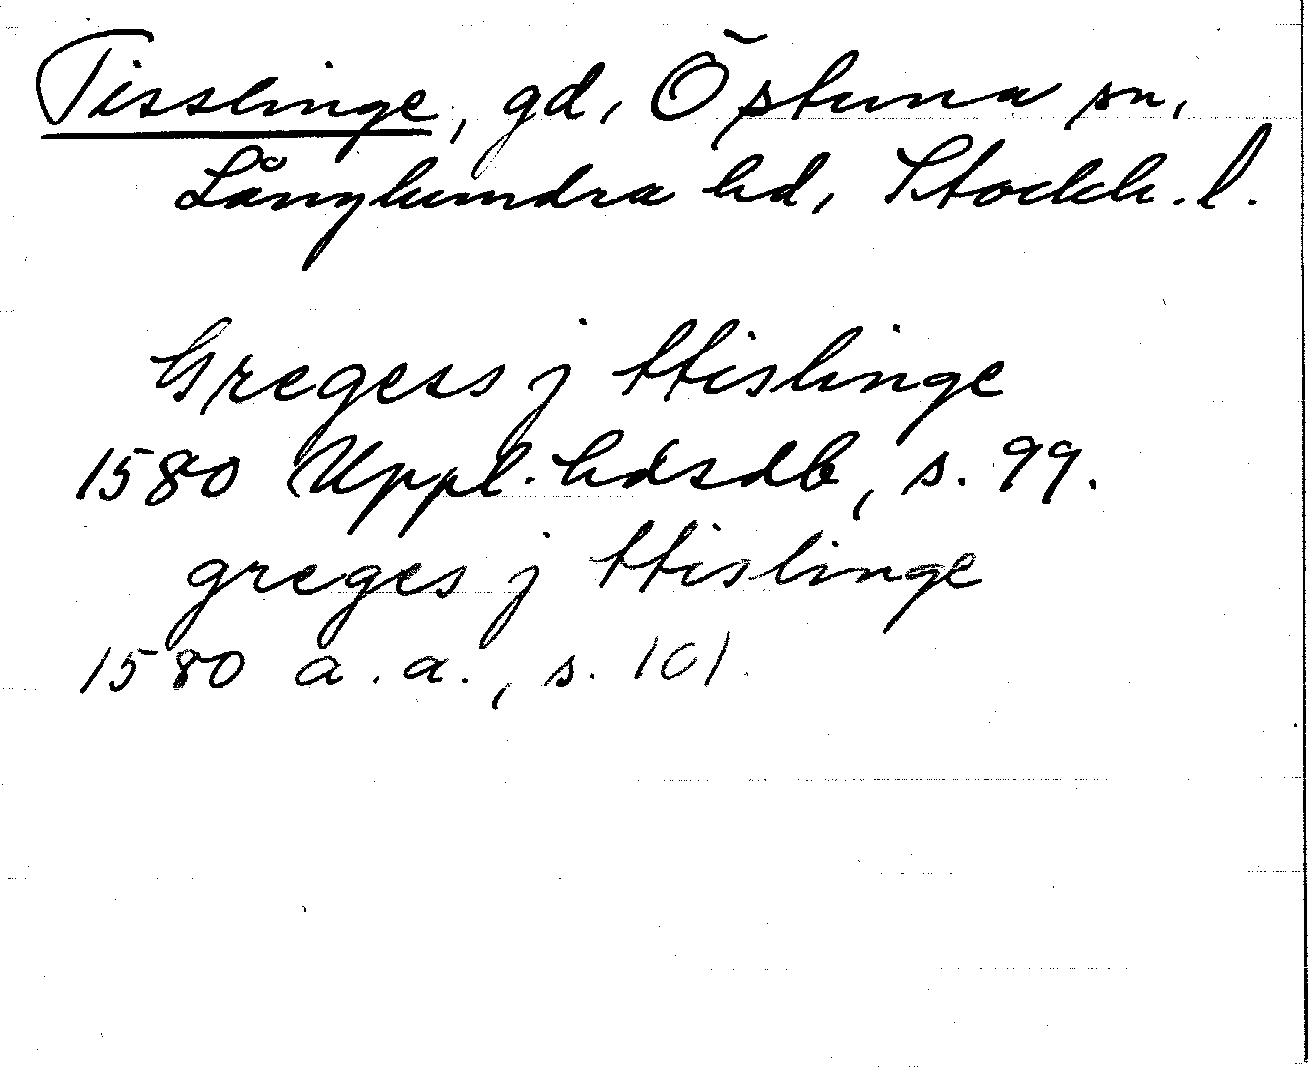 Tisslinge, gd, Östuna sn,
Långhundra hd, Stockh. l.
Gregess j ttislinge
1580 Uppl. hdsdb, s. 99.
greges j ttislinge
1580 a. a., s. 101.